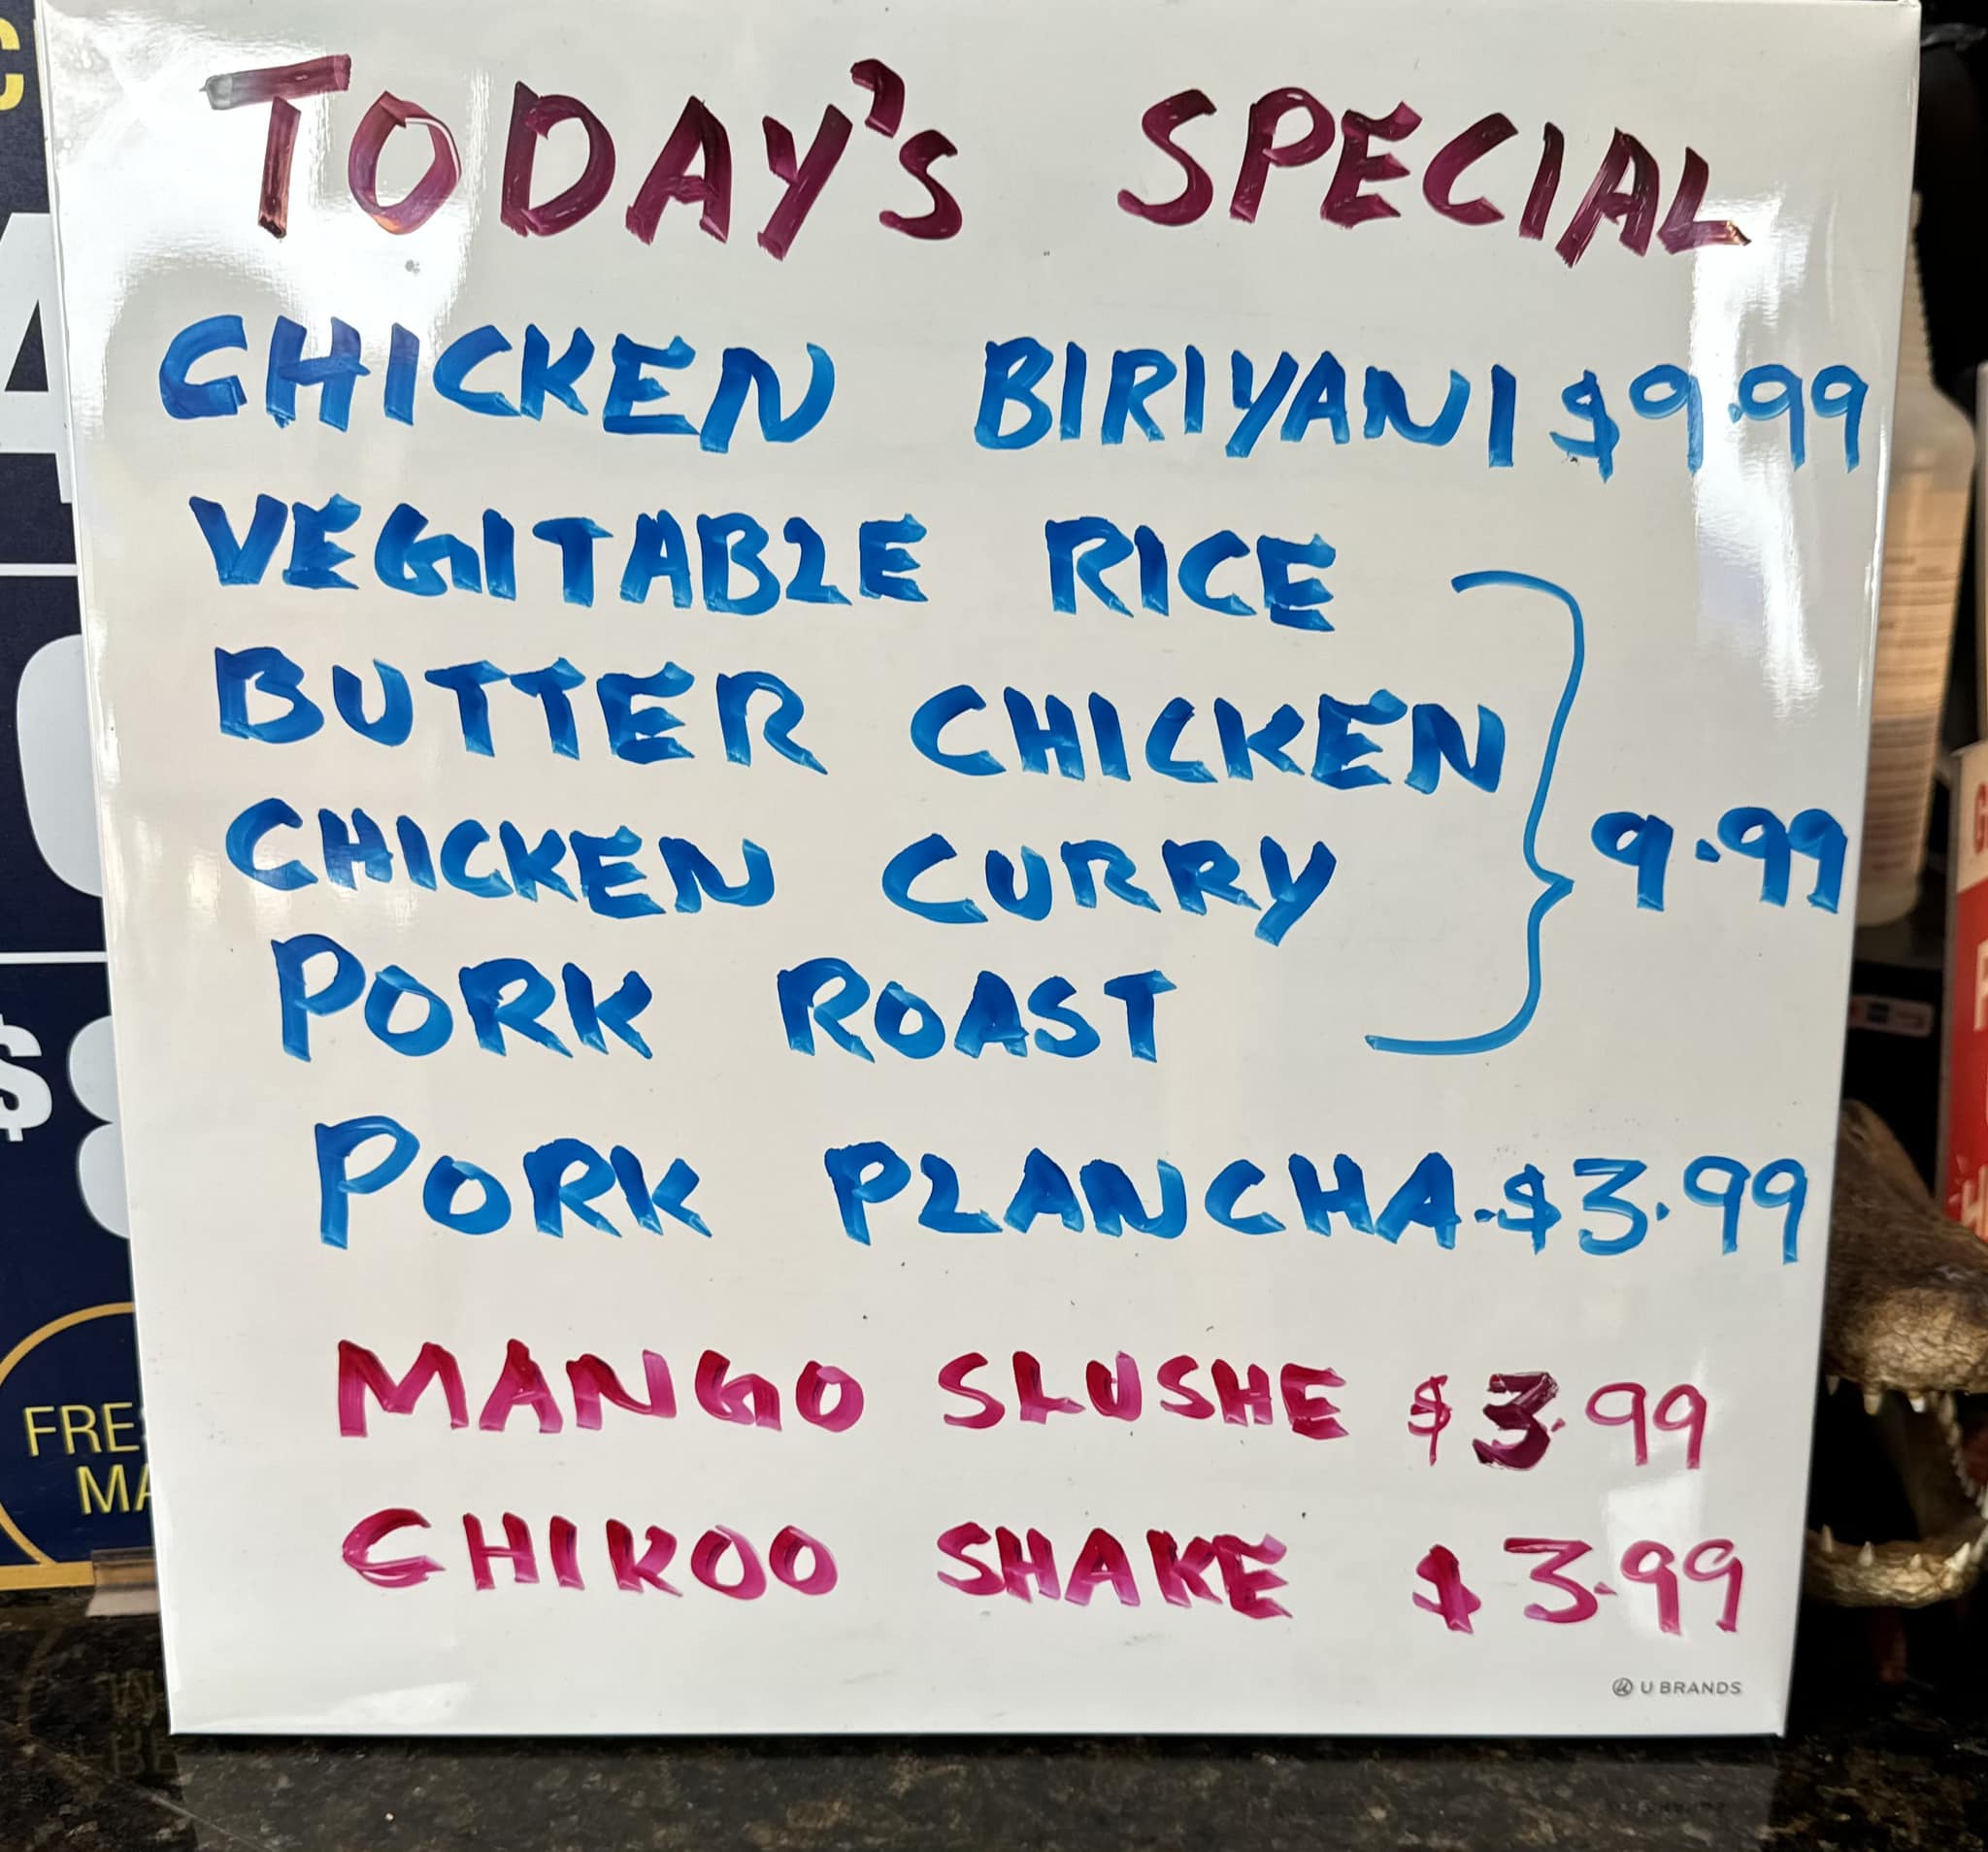 TODAY'S SPECIAL
CHICKEN BIRIYANI $9.99
VEGITABLE RICE
BUTTER CHICKEN
CHICKEN CURRY
PORK ROAST
9.99
PORK PLANCHA-$3.99
MANGO SLUSHE $3.99
CHIKOO SHAKE $3.99
U BRANDS
$
FRE
MA